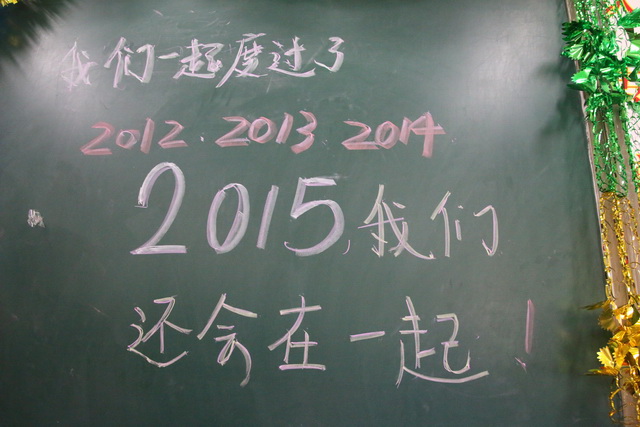 我们一起度过了
2012.2013 2014
2015,我们
还会在一起!